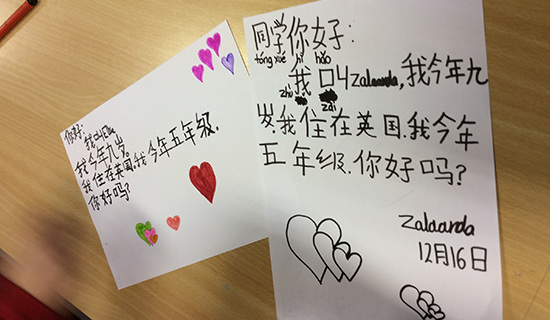 你好:
我叫Ella
我今年九岁。
我住在英国.我今年五年级.
你好吗?
同学你好:
tóng xué nǐ hǎo
我叫Zalaarda,我今年九
zhù zài
岁.我住在英国.我今年
五年级.你好吗?
Zalaarda
12月16日